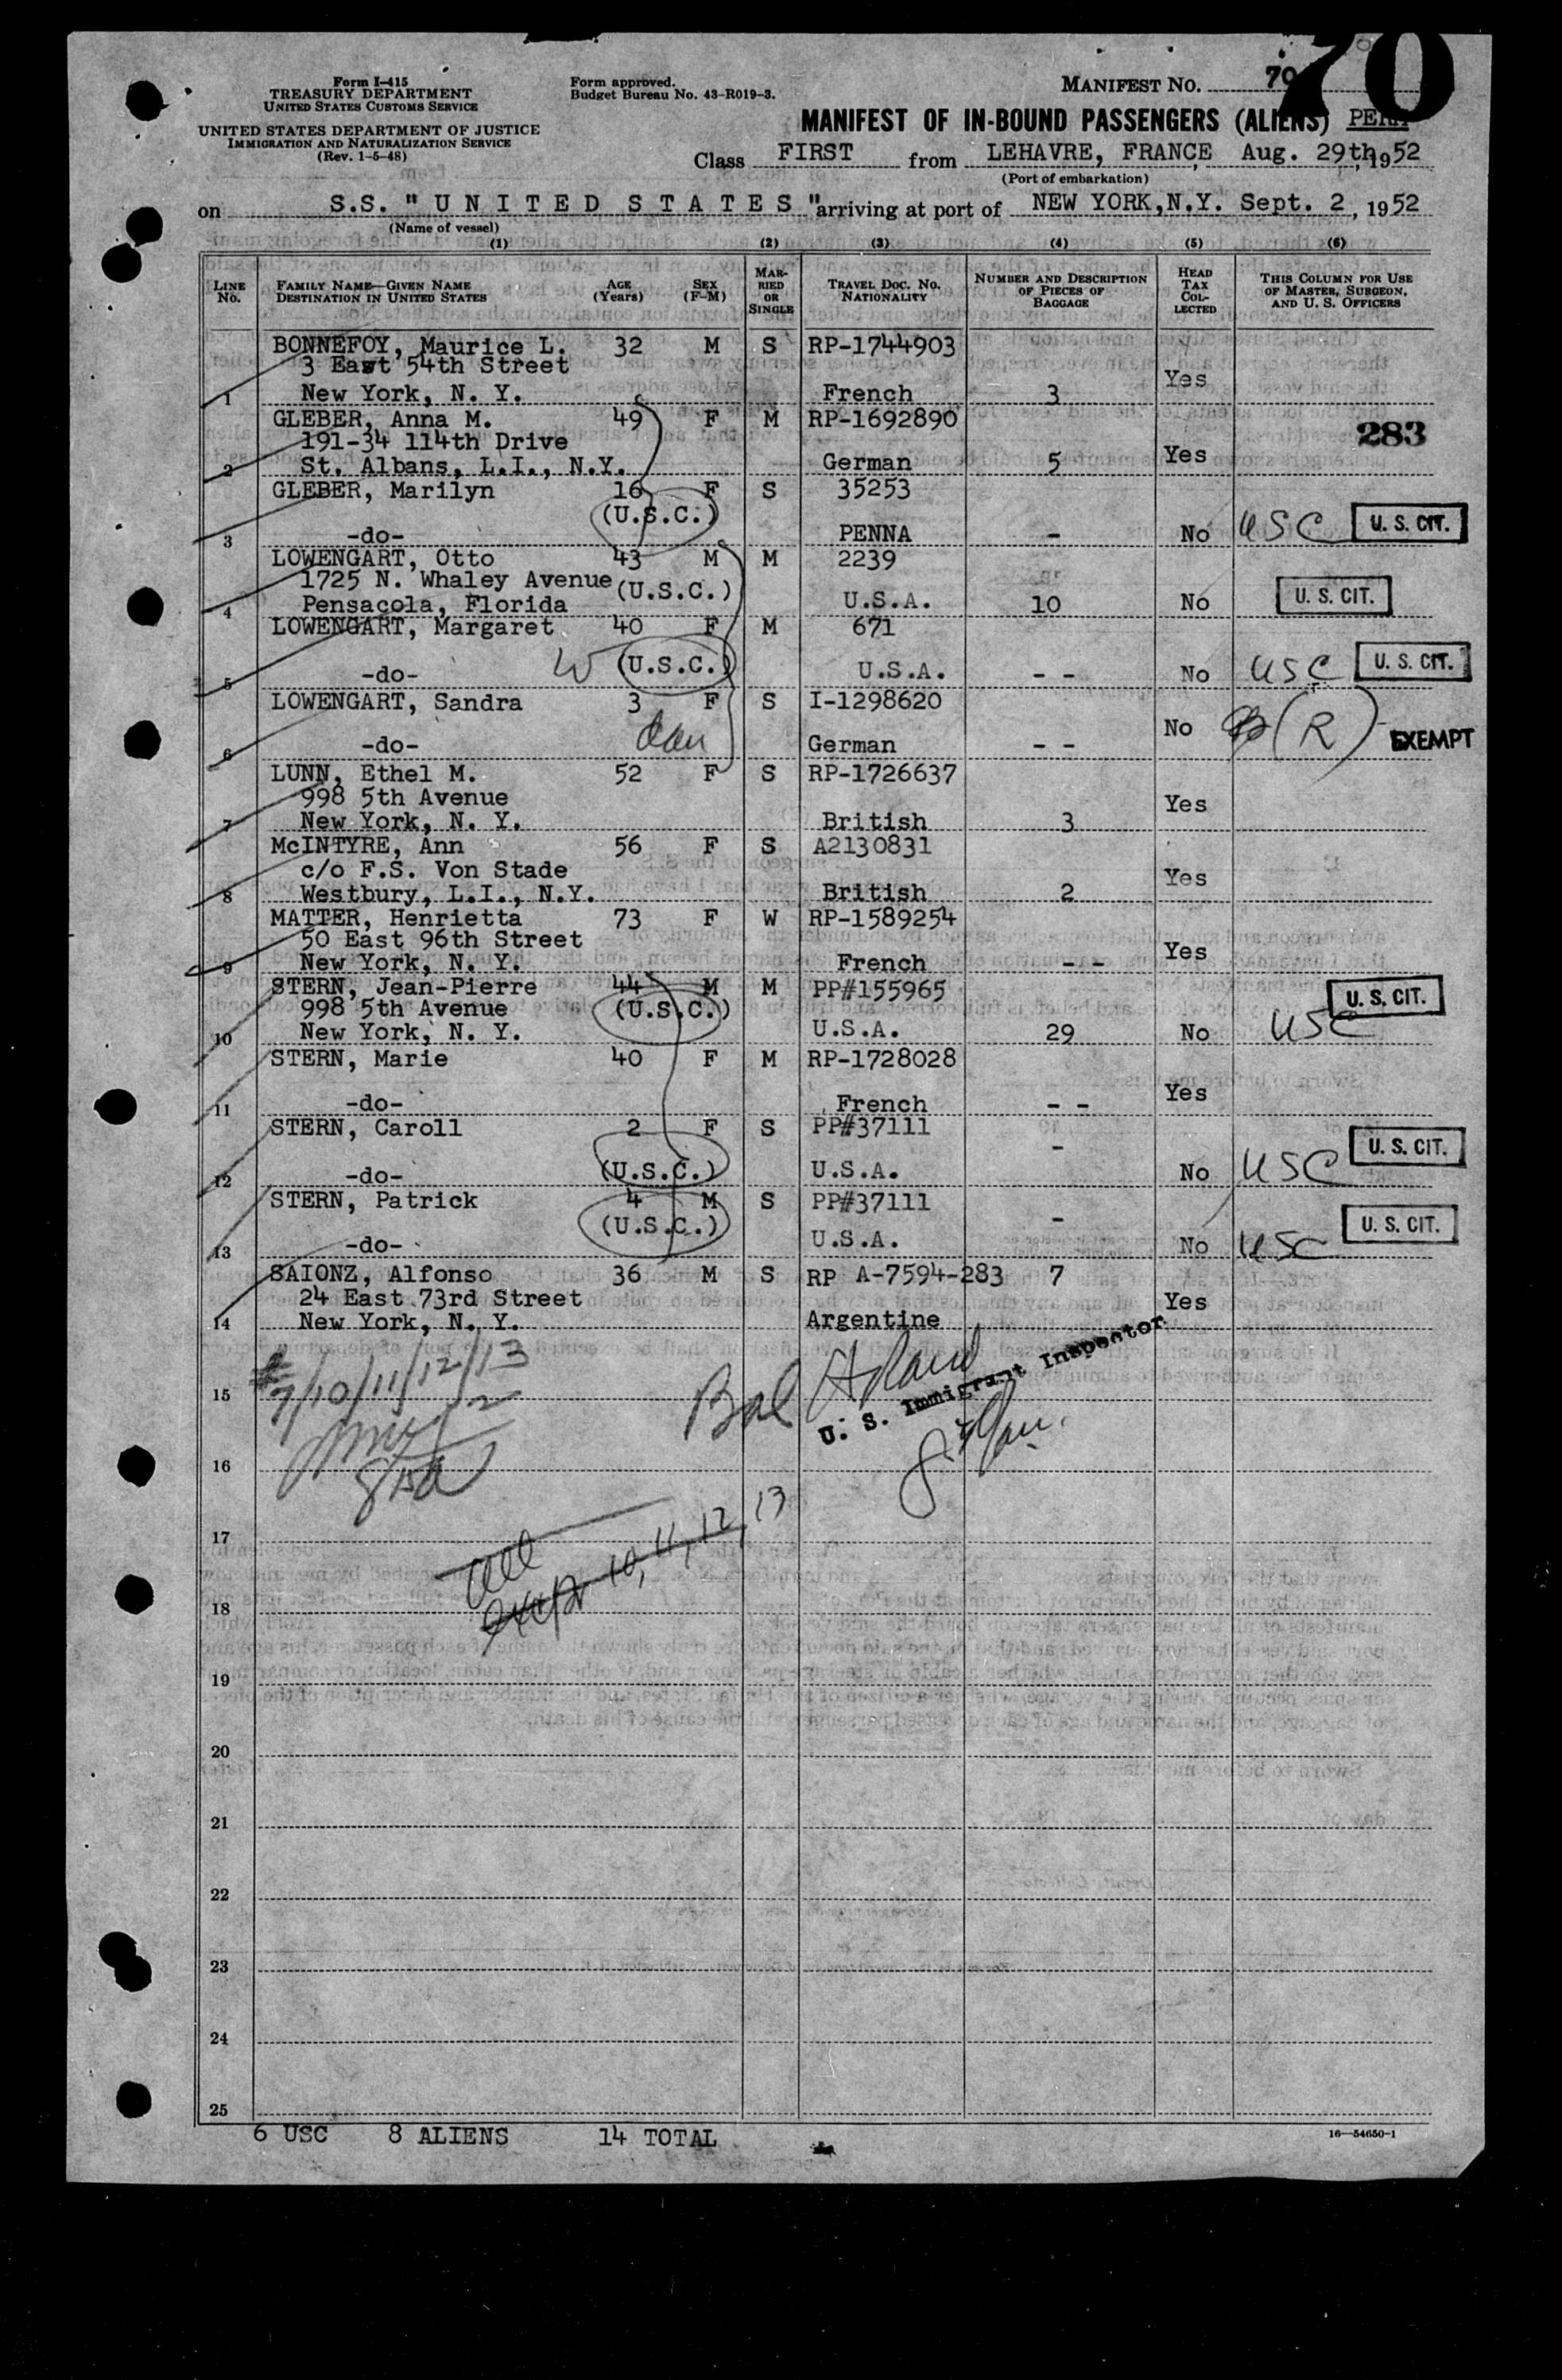 70
Form I-415
TREASURY DEPARTMENT
UNITED STATES CUSTOMS SERVICE
UNITED STATES DEPARTMENT OF JUSTICE
IMMIGRATION AND NATURALIZATION SERVICE
(Rev. 1-5-48)
Form approved.
Budget Bureau No. 43-R019-3.
MANIFEST NO. 70
MANIFEST OF IN-BOUND PASSENGERS (ALIENS) PERM
Class FIRST from LEHAVRE, FRANCE, Aug. 29th, 1952
(Port of embarkation)
on S.S. "UNITED STATES" arriving at port of NEW YORK, N.Y. Sept. 2, 1952
(Name of vessel)
(1) (2) (3) (4) (5) (6)
LINE NO. FAMILY NAME—GIVEN NAME DESTINATION IN UNITED STATES AGE (Years) SEX (F-M) MARRIED OR SINGLE TRAVEL DOC. NO. NATIONALITY NUMBER AND DESCRIPTION OF PIECES OF BAGGAGE HEAD TAX COLLECTED THIS COLUMN FOR USE OF MASTER, SURGEON, AND U. S. OFFICERS
BONNEFOY, Maurice L. 32 M S RP-1744903
3 East 54th Street Yes
1 New York, N. Y. French 3
GLEBER, Anna M. 49 F M RP-1692890
191-34 114th Drive 283
2 St. Albans, L.I., N.Y. German 5 Yes
GLEBER, Marilyn 16 F S 35253
(U.S.C.)
3 -do- PENNA - No USC U. S. CIT.
LOWENGART, Otto 43 M M 2239
1725 N. Whaley Avenue (U.S.C.)
4 Pensacola, Florida U.S.A. 10 No U. S. CIT.
LOWENGART, Margaret 40 F M 671
W (U.S.C.)
5 -do- U.S.A. - - No USC U. S. CIT.
LOWENGART, Sandra 3 F S I-1298620
dau No (R) EXEMPT
6 -do- German - -
LUNN, Ethel M. 52 F S RP-1726637
998 5th Avenue Yes
7 New York, N. Y. British 3
McINTYRE, Ann 56 F S A2130831
c/o F.S. Von Stade Yes
8 Westbury, L.I., N.Y. British 2
MATTER, Henrietta 73 F W RP-1589254
50 East 96th Street Yes
9 New York, N. Y. French - -
STERN, Jean-Pierre 44 M M PP#155965
998 5th Avenue (U.S.C.) U. S. CIT.
10 New York, N. Y. U.S.A. 29 No USC
STERN, Marie 40 F M RP-1728028
Yes
11 -do- French - -
STERN, Caroll 2 F S PP#37111
- U. S. CIT.
12 -do- (U.S.C.) U.S.A. No USC
STERN, Patrick 4 M S PP#37111
(U.S.C.) - U. S. CIT.
13 -do- U.S.A. No USC
SAIONZ, Alfonso 36 M S RP A-7594-283 7
24 East 73rd Street Yes
14 New York, N. Y. Argentine
#7/10/11/12/13
15
Bal
U. S. Immigrant Inspector
16
17
All
except 10, 11, 12, 13
18
19
20
21
22
23
24
25
6 USC 8 ALIENS 14 TOTAL
16—54650-1